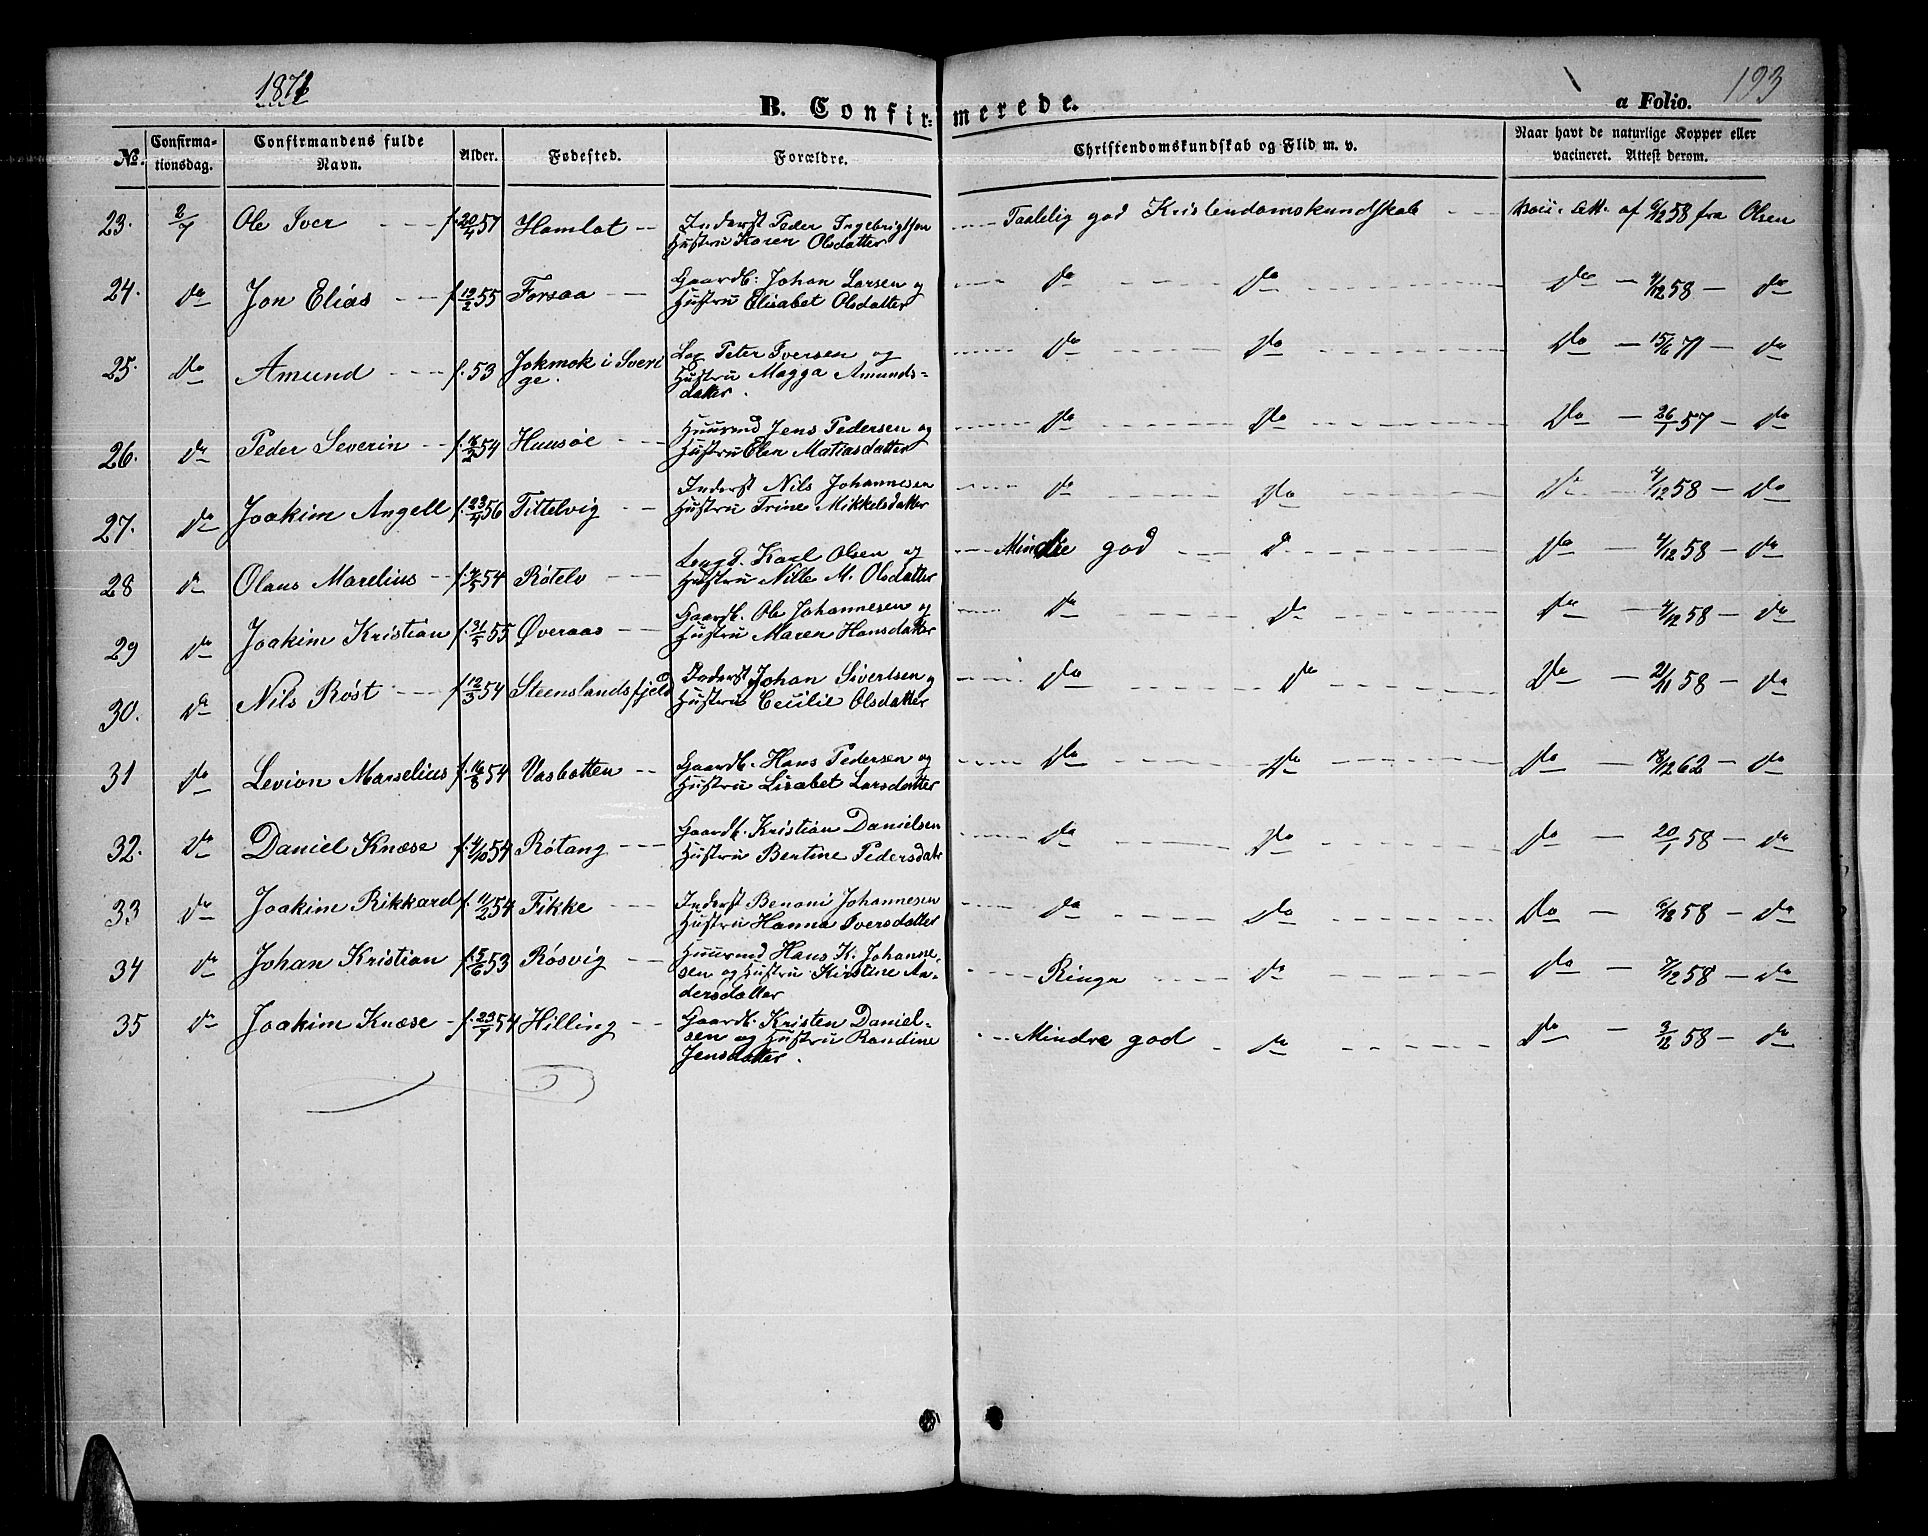 1871
193
B. Confir- merede.
a Folio.
No.
Confirma-
tionsdag.
Confirmandens fulde
Navn.
Alder.
Fødested.
Forældre.
Christendomskundskab og Flid m. v.
Naar havt de naturlige Kopper eller
vacineret. Attest derom.
23. 2/7 Ole Iver f. 20/4 57 Hamlot Inderst Peder Ingebrigtsen Taalelig god Kristendomskundskab Att. af 6/12 58 fra Olsen
Hustru Karen Olsdatter
24. do Jon Elias f. 12/2 55 Forsaa Gaardb. Johan Larsen og do do do 4/12 58 do
Hustru Elisabet Olsdatter
25. do Amund f. 53 Jokmok i Sveri Lap Peter Iversen og do do do 15/6 71 do
ge. Hustru Magga Amunds-
datter.
26. do Peder Severin f. 54 Huusmd Jens Pedersen og do do do 26/1 57 do
Hustru Elen Matiasdatter
27. do Joakim Angell f. 23/4 56 Tittelvig Inderst Nils Johannesen do do do 4/12 58 do
Hustru Trine Mikkelsdatter
28 do Olaus Marelius f. 54 Røtelv Karl Olsen og Mindre god do do 4/12 58 do
Hustru Nille M. Olsdatter
29 do Joakim Kristian f. 31/5 55 Øveraas Gaardb. Ole Johannesen og do do do 4/12 58 do
Hustru Maren Hansdatter
30. do Nils Røst f. 12/3 54 Steenslandsfjeld Inderst Johan Sivertsen og do do do 21/11 58 do
Hustru Cecilie Olsdatter
31 do Levion Marselius f. 16/8 54 Vasbotten Gaardb. Hans Pedersen og do do do 18/12 62 do
Hustru Lisabet Larsdatter
32. do Daniel Knæse f. 4/10 54 Røtang Gaardb. Kristian Danielsen do do do 20/1 58 do
Hustru Bertine Pedersdatr
33 do Joakim Rikkard f. 11/2 54 Fikke Inderst Benoni Johannesen do do do 6/12 58 do
Hustru Hanna Iversdatter
34 do Johan Kristian f. 5/6 53 Røsvig Huusmd Hans K. Johanne- Ringe do do 7/12 58 do
sen og Hustru Kirstine An-
dersdatter
35 do Joakim Knæse f. 23/7 54 Hilling Gaardb. Kristen Daniel- Mindre god do do 3/12 58 do
sen og Hustru Randine
Jensdatter.